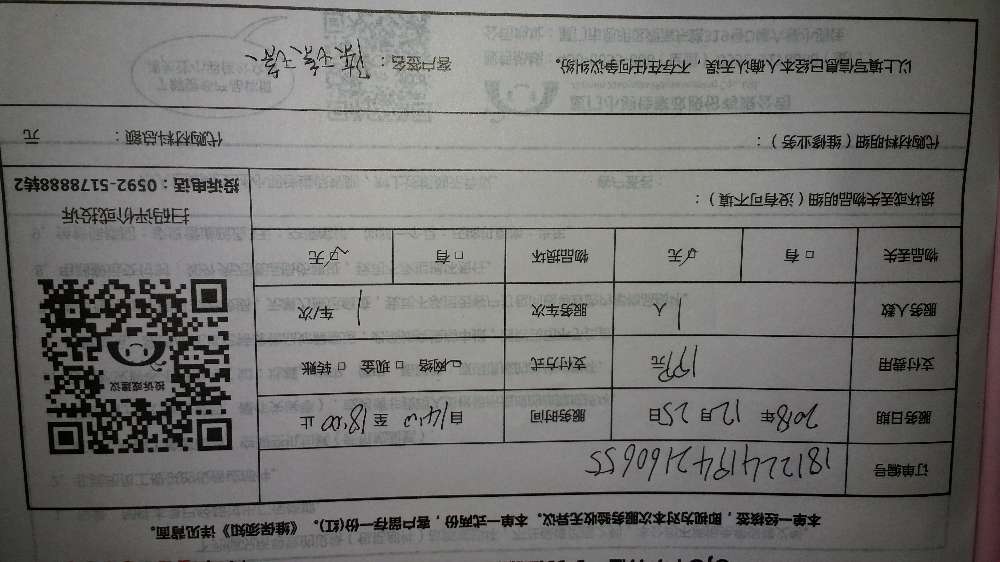 本单一经核签，即视为对本次服务验收无异议。本单一式两份，客户留存一份(红)。《维保须知》详见背面。
订单编号 1812241942160655
服务日期 2018年12月25日 服务时间 自14:00至18:00止
支付费用 199元 支付方式 □网络 □现金 □转账
服务人数 1人 服务车次 1车/次
物品丢失 □有 ☑无 物品损坏 □有 ☑无
投诉或建议
扫码评价或投诉
投诉电话：0592-5178888转2
损坏或丢失物品明细（没有可不填）：
代购材料明细（维修业务）： 代购材料总额： 元
以上填写信息已经本人确认无误，不存在任何争议纠纷。 客户签名：